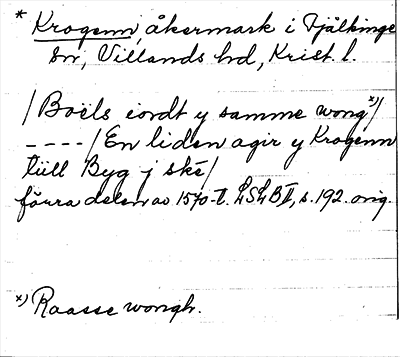 * Krogenn, åkermark i Fjälkinge
sn, Villands hd, Krist. l.
/Boëls iordt y samme wong x)/
----/En liden agir y Krogenn
tiill Byg j ské/
förra delen av 1570-t. LSLB II, s. 192. orig.
x) Raasse wongh.